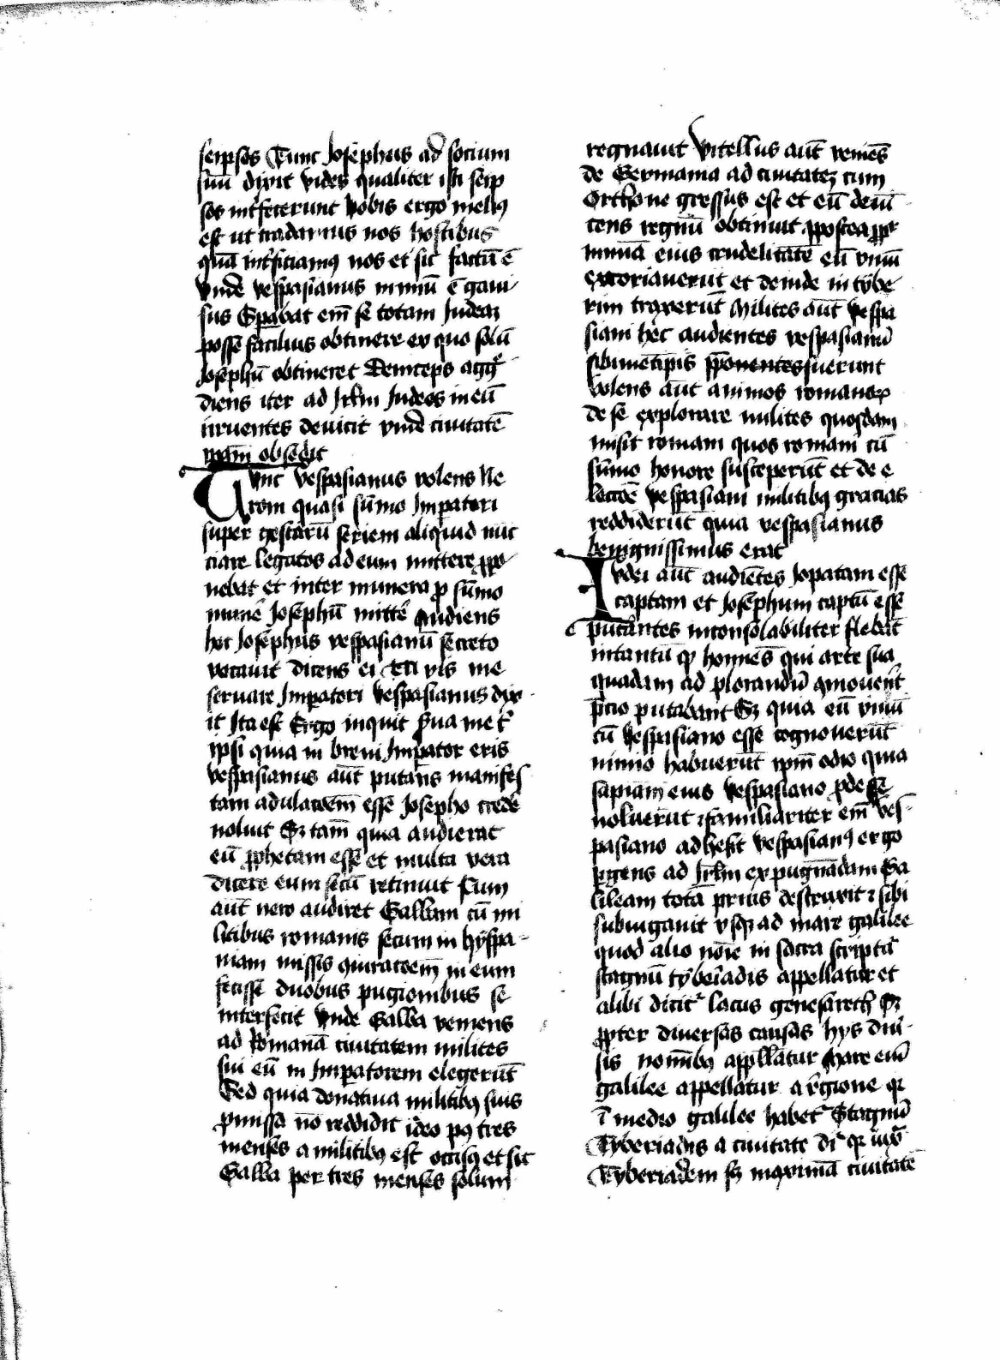 seipsos Tunc Josephus ad socium
suū dixit vides qualiter isti seip
sos int̄fecerunt Nobis ergo meliꝰ
est ut tradamus nos hostibus
quā int̄ficiamꝰ nos et sic factū ē
vnde vespasianus nimiū ē gaui
sus Sp̄abat em̄ se totam Judeaꝫ
posse facilius obtinere ex quo solū
Josephū obtineret Deinceps agg̃
diens iter ad Jrlm̄ Judeos in eū
irruentes deuicit vnd̄e ciuitatē
ip̄am obsedit
Tvnc vespasianus volens Ne
rom quasi sūmo Imperatori
super gestarū seriem aliquid nūc
ciare legatos ad eum mittere ꝓpo
nebat et inter munera ꝓ sūmo
mune᷑ Josephū mitte᷑ Audiens
hec Josephus vespasianū secreto
vocauit dicens ei Tu vis me
seruare Imperatori Vespasianus dix
it Ita est Ergo inquit S̄ua me t᷑
ip̄si quia in breui Impator eris
vespasianus aūt putans manifes
tam adulacōem esse Josepho crede᷑
noluit Sꝫ tam̄ quia audierat
eū ꝓphetam esse et multa vera
dicere eum secū retinuit Cum
aūt nero audiret Galbam cū mi
litibus romanis secum in hyspa
niam missis quiracōem̄ in eum
fecisse duobus pugionibus se
interfecit vnde Galba veniens
ad Romanā ciuitatem milites
sui eū in Imperatorem elegerūt
Sed quia donatiua militibꝰ suis
ꝓmissa nō reddidit ideo pꝰ tres
menses a militibꝰ est occisꝰ et sic
Galba per tres menses solum
regnauit vitellius aūt veniēs
de Germania ad ciuitateꝫ cum
Orthone gressus est et eū deuī
cens regnū obtinuit ꝓpostea ꝓpt
nimiā eius crudelitatē eū viuū
excoriauerūt et deinde in tybe
rim traxerūt Milites aūt vespa
siani hec audientes vespasianū
sibimetip̄is p̄ponentes fuerunt
Volens aūt animos romanoꝝ
de se explorare milites quosdam
misit romam quos romani cū
sūmo honore susceperūt et de e
lectōe vespasiani militibꝰ gracias
reddiderūt quia vespasianus
benignissimus erat
Ivdei aūt audiētes Jopatam esse
captam et Josephum captū esse
putantes inconsolabiliter flebāt
intantū qꝫ homīes qui arte sua
quadam ad plorandū ꝯmouent̄
p̄cio putabant Sꝫ quia eū viuū
cū vespasiano esse cognouerūt
nimio habuerūt ip̄m odio quia
sapiam eius vespasiano ꝓdesse
noluerūt ⁊ familiariter em̄ ves
pasiano adhesit vespasianꝰ ergo
ꝑgens ad Jrlm̄ expugnādam Ga
lileam totā prius destruxit ⁊ sibi
subiugauit vsqꝫ ad mare galilee
quod alio noīe in sacra scriptᷓ
stagnū tyberiadis appellatur et
alibi dicit᷑ lacus genesareth Sꝫ
ꝓpter diuersas causas hys diū
sis nomībꝰ appllatur Mare em̄
galilee appellatur a r̄gione qꝛ
ī medio galilee habet᷑ Stagnū
Tyberiadis a ciuitate dr̄ qꝛ iux̄
Tyberiadem sꝫ maximā ciuitatē